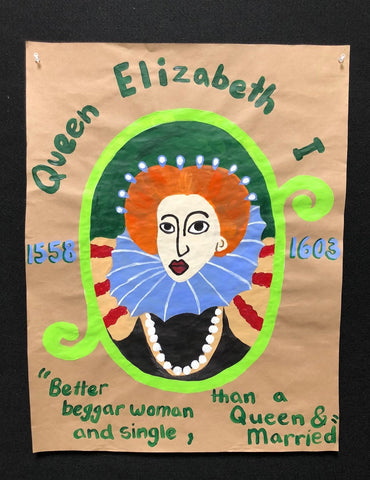 Queen Elizabeth I
1558 1603
"Better than a
beggar woman Queen &
and single, Married"